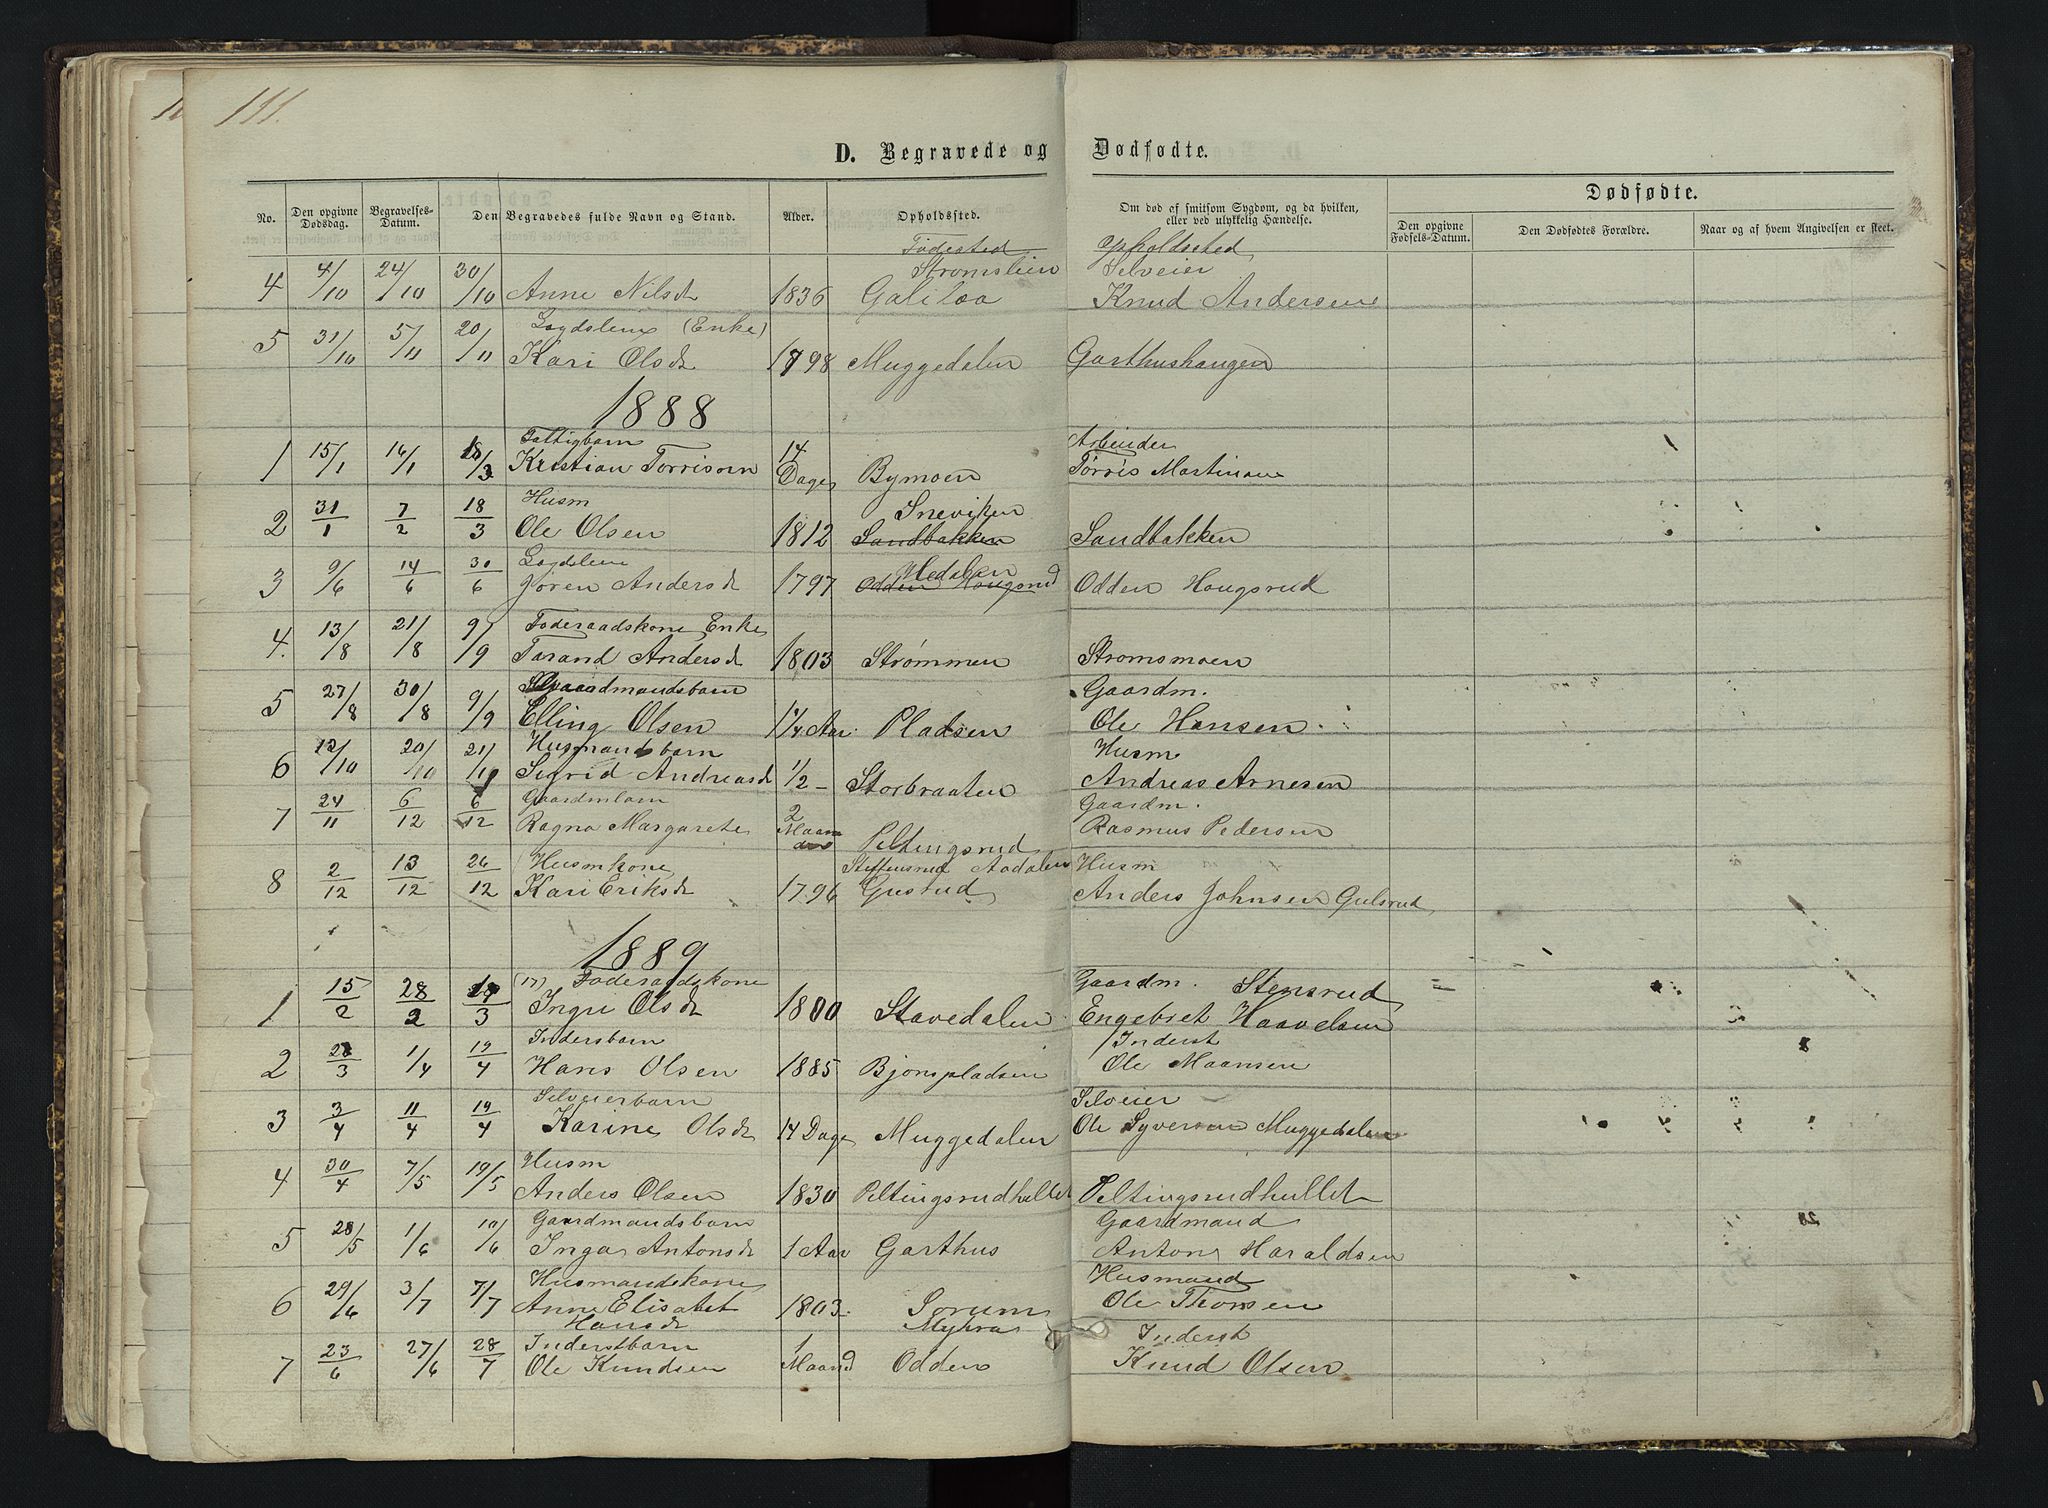 111.
D. Begravede og Dødfødte.
No. Den opgivne Dødsdag. Begravelses-Datum. Den Begravedes fulde Navn og Stand. Alder. Opholdssted. Om død af smitsom Sygdom, og da hvilken, eller ved ulykkelig Hændelse. Dødfødte.
Den opgivne Fødsels-Datum. Den Dødfødtes Forældre. Naar og af hvem Angivelsen er skeet.
Fødested Opholdssted
Strømslien Selveier
4 4/10 24/10 30/10 Anne Nilsd 1836 Galilæa Knud Andersen
Lægdslem (Enke)
5 31/10 5/11 20/11 Kari Olsd 1798 Muggedalen Garthushaugen
1888
Fattigbarn 14 Arbeider
1 15/1 16/1 18/3 Kristian Torrissen Dage Bymoen Tørris Martinsen
Husm Sneviken
2 31/1 7/2 18/3 Ole Olsen 1812 Sandbakken Sandbakken
Lægdslem Hedalen
3 9/6 14/6 30/6 Jøren Andersd 1797 Odden Hougsrud Odden Hougsrud
Føderaadskone Enke
4. 13/8 21/8 9/9 Tarand Andersd 1803 Strømmen Strømsmoen
Gaardmandsbarn Gaardm.
5 27/8 30/8 9/9 Elling Olsen 1 1/4 Aar. Pladsen Ole Hansen
Husmandsbarn Husm
6 12/10 20/10 21/11 Sigrid Andreasd 1/2 - Storbraaten Andreas Arnesen
Gaardmbarn 2 Gaardm.
7 24/11 6/12 6/12 Ragna Margarete Maaneder Peltingsrud Rasmus Pedersen
Husmkone Steffensrud Aadalen Husm
8 2/12 13/12 26/12 Kari Eriksd 1796 Gusrud Anders Johnsen Gulsrud
1889
(17) Føderaadskone Gaardm. Stensrud
1 15/2 28/2 19/3 Ingri Olsd 1800 Stavedalen Engebret Haavelsen
Inderstbarn Inderst
2 28/3 1/4 19/4 Hans Olsen 1885 Bjønspladsen Ole Maansen
Selveierbarn Selveier
3 3/4 11/4 19/4 Karine Olsd 14 Dage Muggedalen Ole Syversen Muggedalen
Husm
4 30/4 7/5 19/5 Anders Olsen 1830 Peltingsrudhullet Peltingsrudhullet
Gaardmandsbarn Gaardmand
5 28/5 1/6 10/6 Inga Antonsd 1 Aar Garthus Anton Haraldsen
Husmandskone Husmand
6 29/6 3/7 7/7 Anne Elisabet 1803. Sorum Ole Thorsen
Hansd Myhra
Inderstbarn 1 Inderst
7 23/6 27/6 28/7 Ole Knudsen Maaned Odden Knud Olsen